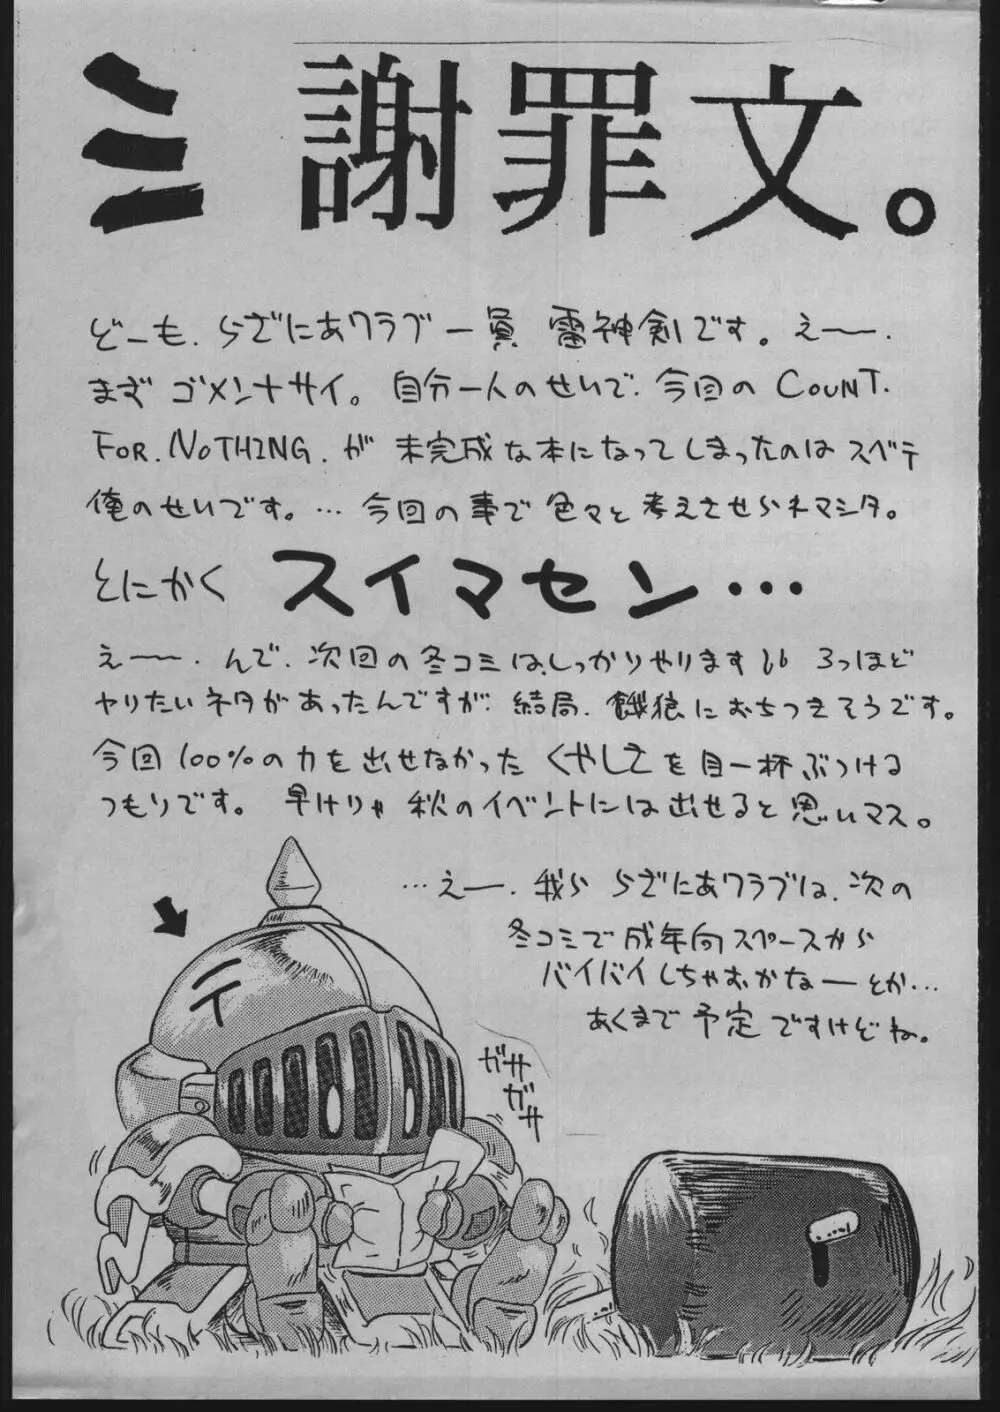 ミ 謝罪文。
どーも、らざにあクラブ一員 雷神剣です。えーー、
まず ゴメンナサイ。自分一人のせいで、今回の COUNT.
FOR. NOTHING. が 未完成な本になってしまったのは スベテ
俺のせいです。… 今回の事で色々と 考えさせらネマシタ。
とにかく スイマセン…
えーー、んで、次回の冬コミは、しっかりやりますい 3つほど
ヤリたいネタがあったんですが、結局、餓狼におちつきそうです。
今回 100%の力を出せなかった くやしさを目一杯ぶつける
つもりです。 早けりゃ 秋のイベントには出せると思いマス。
…えー、我ら らざにあクラブは、次の
冬コミで成年向スペースから
バイバイしちゃおかなーとか…
あくまで 予定 ですけどね。
ガサ
ガサ